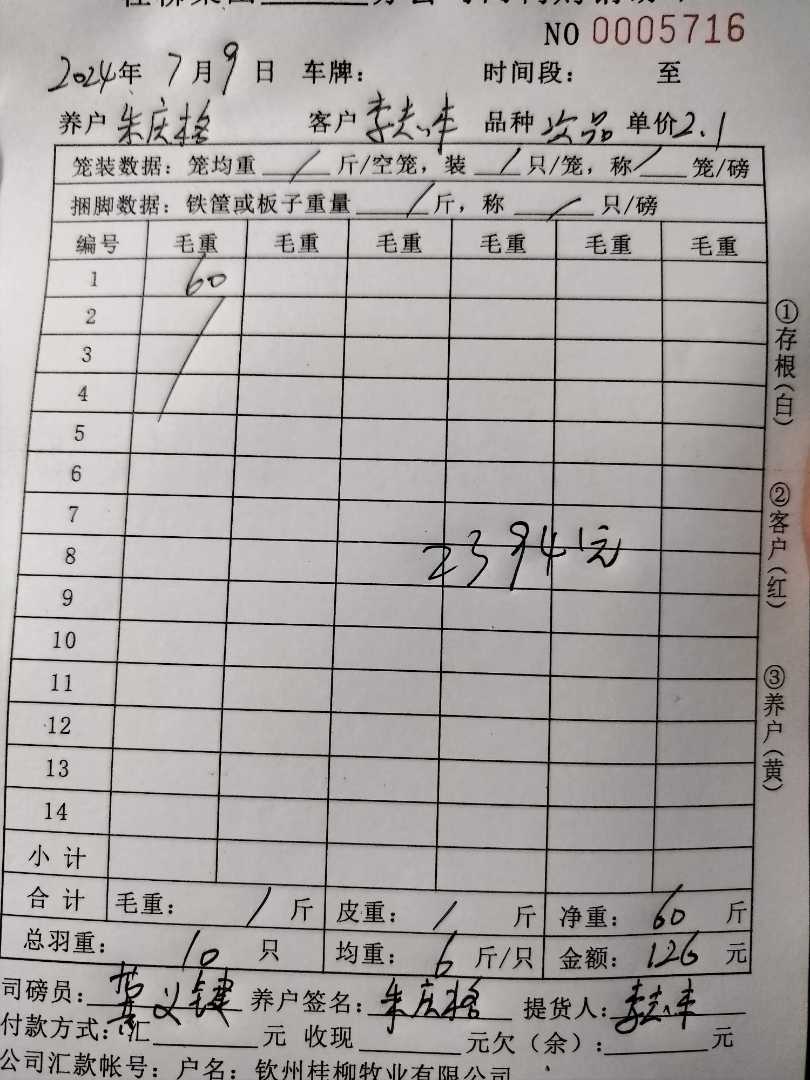 NO 0005716
2024年 7月9日 车牌： 时间段： 至
养户 朱庆格 客户 李志丰 品种 次品 单价2.1
笼装数据：笼均重 / 斤/空笼，装 / 只/笼，称 / 笼/磅
捆脚数据：铁筐或板子重量 / 斤，称 / 只/磅
编号 毛重 毛重 毛重 毛重 毛重 毛重
1 60
2
3
4
5
6
7
8 23941元
9
10
11
12
13
14
小计
合计 毛重： / 斤 皮重： / 斤 净重： 60 斤
总羽重： 10 只 均重： 6 斤/只 金额： 126 元
司磅员： 义键 养户签名：朱庆格 提货人：李志丰
付款方式：汇 元 收现 元欠（余）： 元
公司汇款帐号：户名：钦州桂柳牧业有限公司
①存根（白）
②客户（红）
③养户（黄）